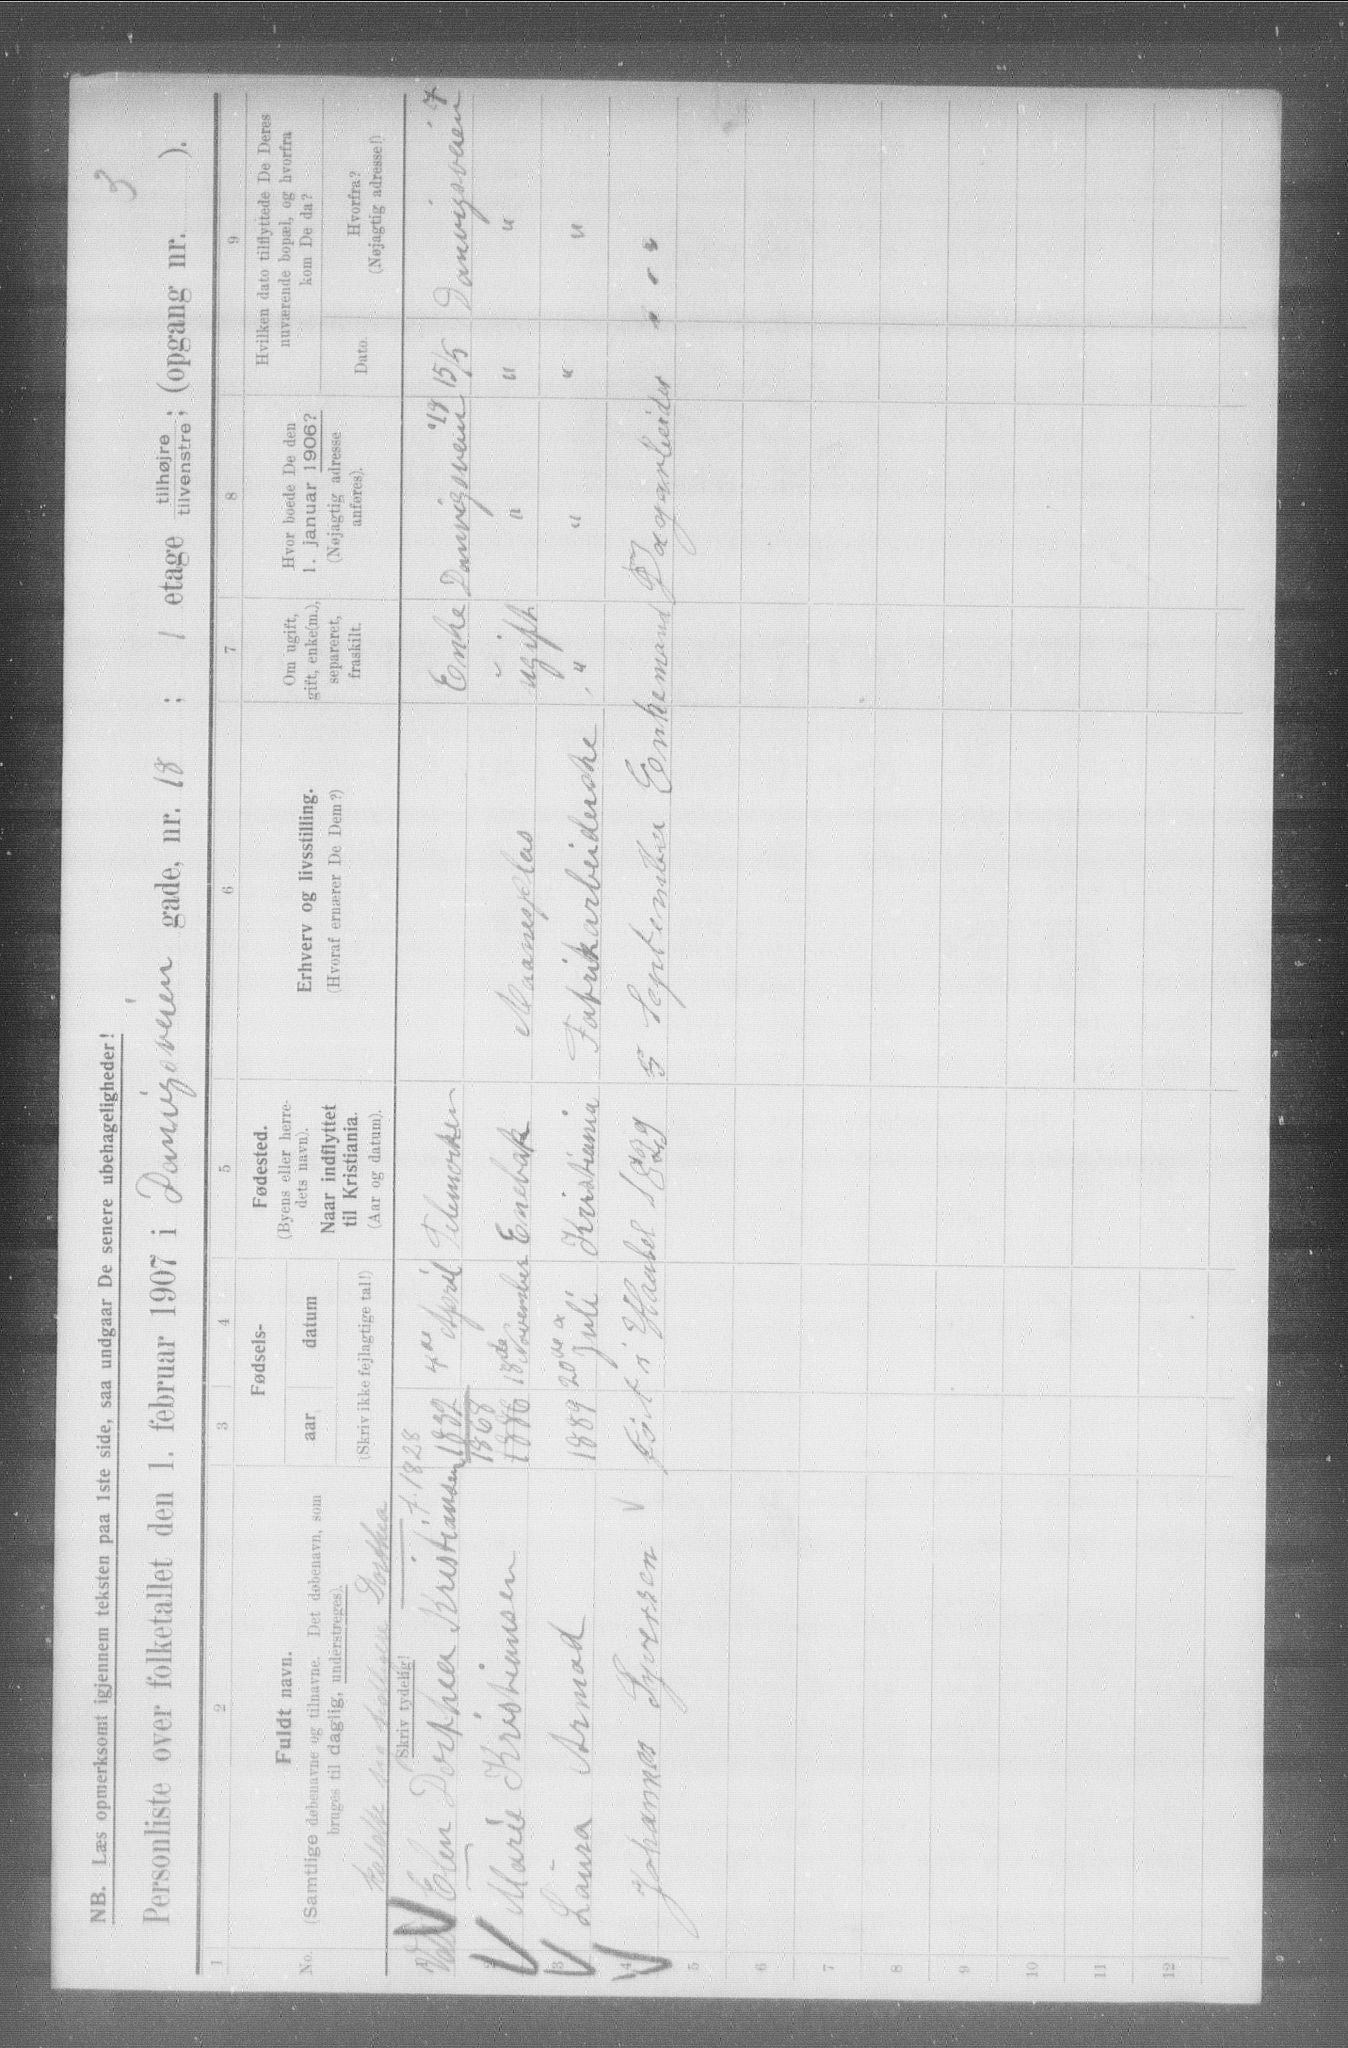 3
NB. Læs opmerksomt igjennem teksten paa 1ste side, saa undgaar De senere ubehageligheder!
Personliste over folketallet den 1. februar 1907 i Danvigsveien gade, nr. 18 ; 1 etage tilhøjre tilvenstre; (opgang nr. ).
1 2 3 4 5 6 7 8 9
No.
Fuldt navn.
(Samtlige døbenavne og tilnavne. Det døbenavn, som
bruges til daglig, understreges).
Skriv tydelig!
Fødsels-
aar datum
(Skriv ikke fejlagtige tal!)
Fødested.
(Byens eller herre-
dets navn).
Naar indflyttet
til Kristiania.
(Aar og datum).
Erhverv og livsstilling.
(Hvoraf ernærer De Dem?)
Om ugift,
gift, enke(m.),
separeret,
fraskilt.
Hvor boede De den
1. januar 1906?
(Nøjagtig adresse
anføres).
Hvilken dato tilflyttede De Deres
nuværende bopæl, og hvorfra
kom De da?
Dato.
Hvorfra?
(Nøjagtig adresse!)
Dorthea
f. 1828
Elen Dorthea Kristiansen 1832 April Telemarken Enke Danvigsveien 18 15/5 Danvigsveien 7
1868
2 Marie Kristiansen 1886 18de November Enebak ugift " " "
3 Laura Arnod 1889 20de Juli Kristiania Fabrikarbeiderske " " " "
4 Johannes Syversen født i 1839 5 September Enkemand
5
6
7
8
9
10
11
12